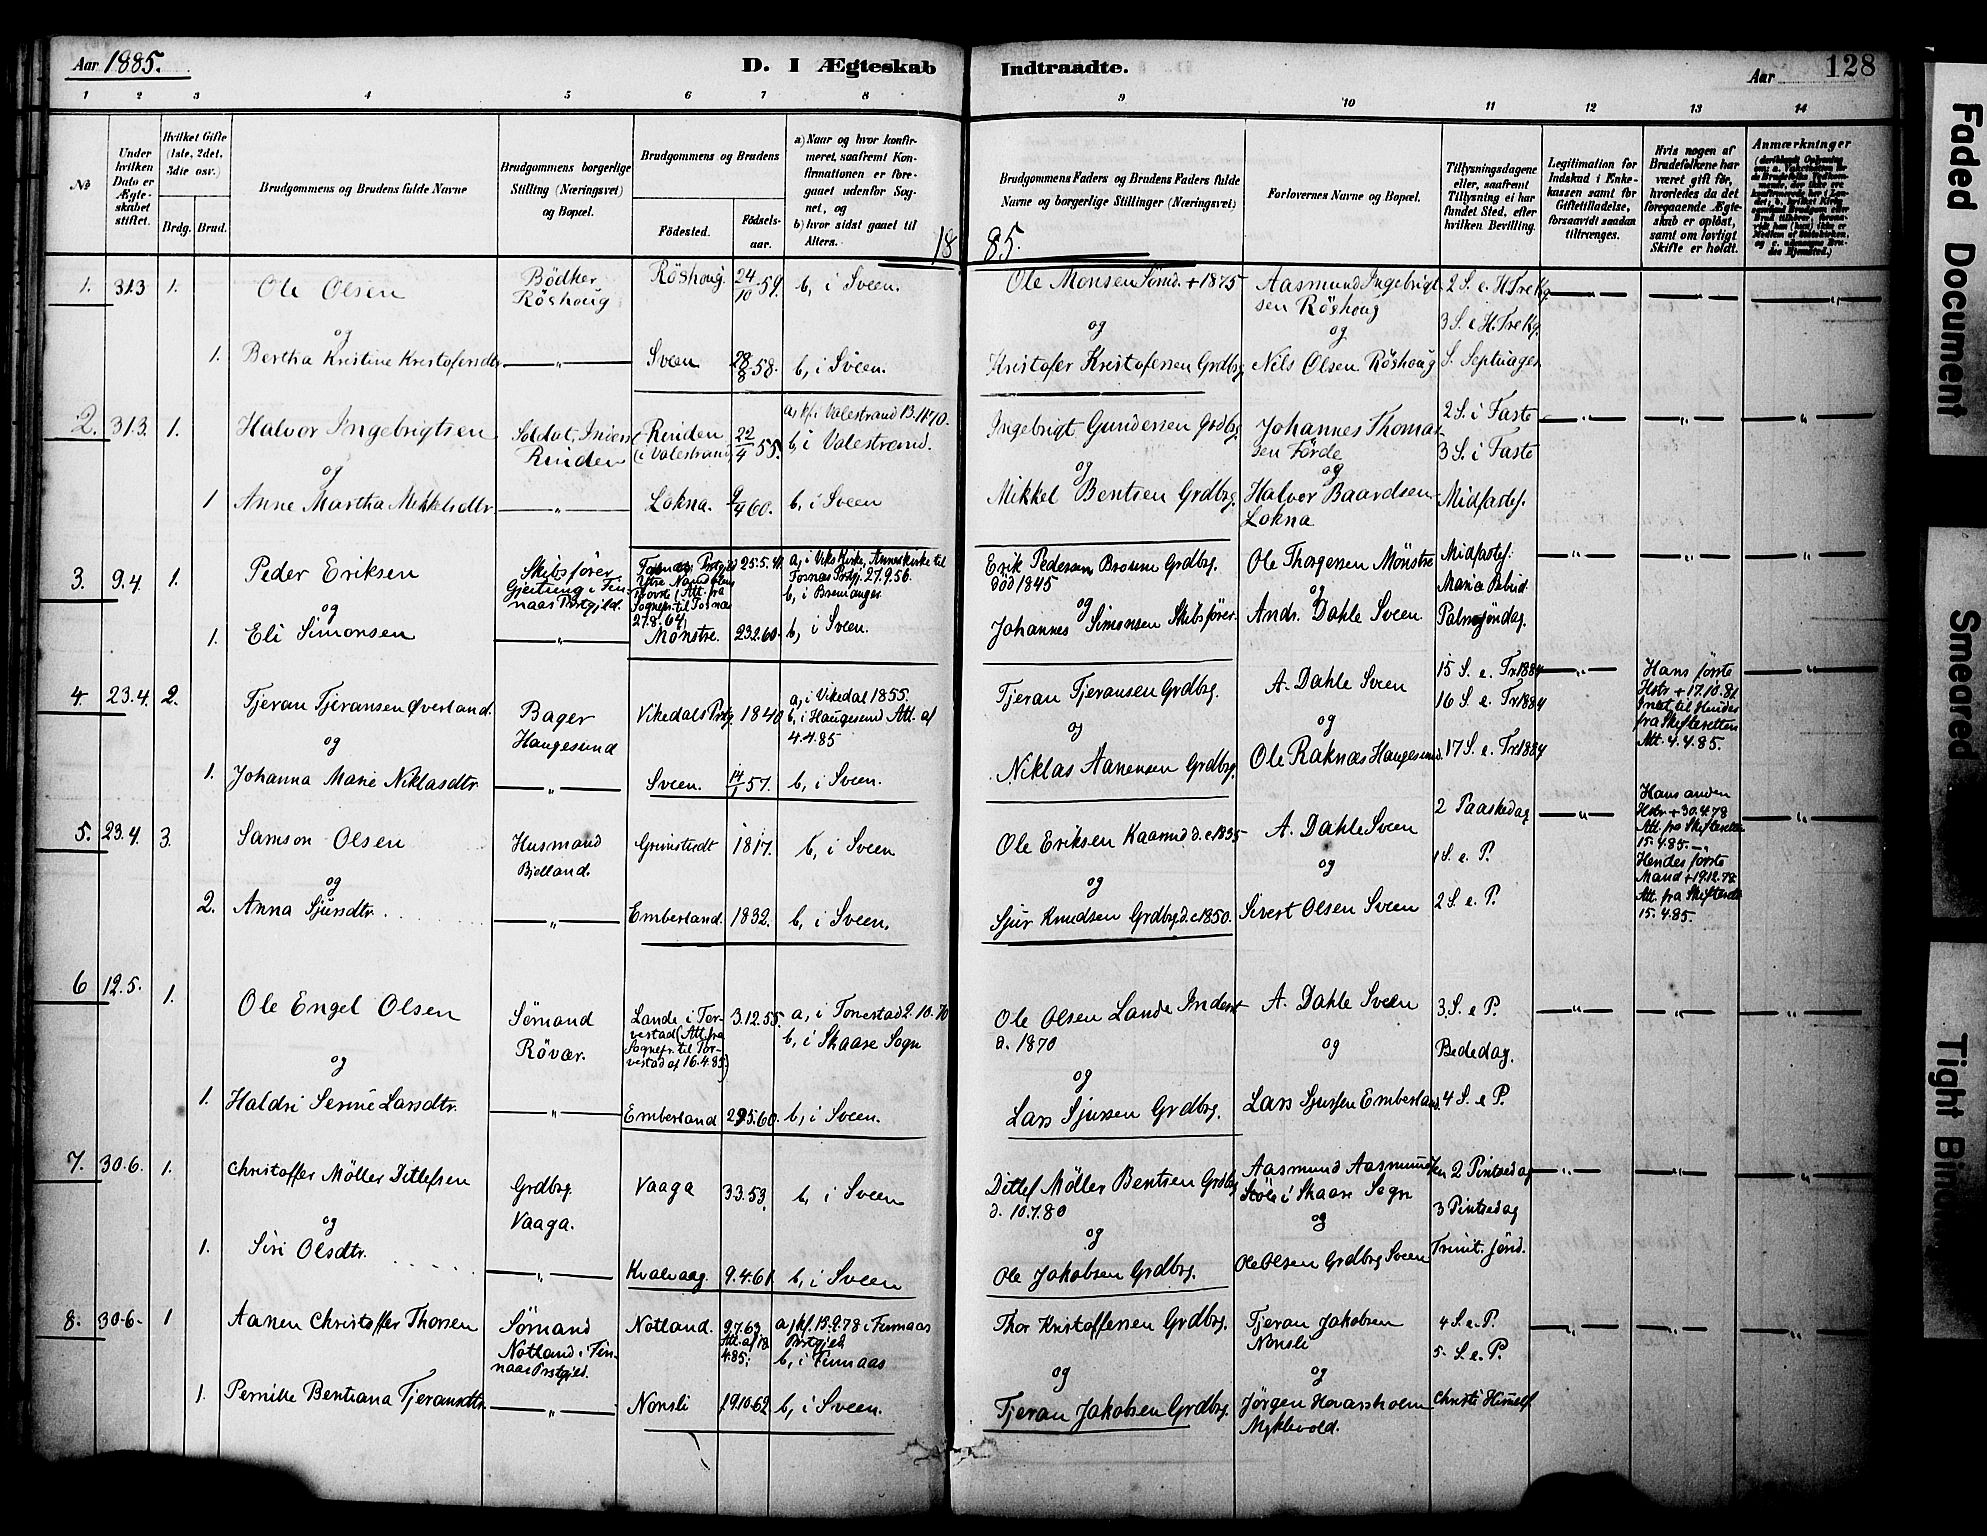 Aar 1885.
D. I Ægteskab Indtraadte.
Aar 128
1 2 3 4 5 6 7 8 9 10 11 12 13 14
№
Under hvilken Dato er Ægteskabet stiftet.
Hvilket Gifte (1ste, 2det, 3die osv.)
Brdg. Brud.
Brudgommens og Brudens fulde Navne
Brudgommens borgerlige Stilling (Næringsvei) og Bopæl.
Brudgommens og Brudens
Fødested. Fødselsaar.
a) Naar og hvor konfirmeret, saafremt Konfirmationen er foregaaet udenfor Sognet, og
b) hvor sidst gaaet til Alters.
Brudgommens Faders og Brudens Faders fulde Navne og borgerlige Stillinger (Næringsvei)
Forlovernes Navne og Bopæl.
Tillysningsdagene eller, saafremt Tillysning ei har fundet Sted, efter hvilken Bevilling.
Legitimation for Indskud i Enkekassen samt for Giftetilladelse, forsaavidt saadan tiltrænges.
Hvis nogen af Brudefolkene har været gift før, hvorledes da det foregaaende Ægteskab er opløst, samt om lovligt Skifte er holdt.
Anmærkninger
1885.
1. 313 1. Ole Olsen Bödker Röshoug Röshoug. 24/10 59. b, i Sveen. Ole Monsen Sömd. + 1875 Aasmund Ingebrigtsen Röshoug 2 S. e. H. Tre Kg.
og og og 3 S. e H. Tre Kg.
1. Bertha Kristine Kristofersdtr. — " — Sveen 28/8 58. b, i Sveen. Kristofer Kristofersen Grdbg. Nils Olsen Röshoug S. Septuages
2. 313. 1. Halvor Ingebrigtsen Soldat, Inderst Rinden Rinden (i Valestrand) 22/4 55. a, kf. i Valestrand 13.11.70. b, i Valestrand. Ingebrigt Gundersen Grdbg. Johannes Thomassen Förde 2 S. i Faste
og og og 3 S. i Faste
1 Anne Martha Mikkelsdtr — " — Lokna. 9/4 60. b, i Sveen Mikkel Bentsen Grdbg. Halvor Baardsen Lokna Midfastes.
3. 9.4 1. Peder Eriksen Skibsförer Gjeitung i Finnaas Prstgjeld. (Att. fra Sognepr. til Fosnæs 27.8.64) 25.5.41 a, i Viks Kirke, Annexkirke til Fosnæs Prstgj. 27.9.56. b, i Bremanger Erik Pedersen Broum Grdbg. död 1845 Ole Thorgersen Mönstre Midfastes.
og og Maria Bebud.
1. Eli Simonsen — " — Mönstre. 23.2.60. b, i Sveen. Johannes Simonsen Skibsförer. Andr. Dahle Sveen Palmesöndag.
4. 23.4. 2. Tjeran Tjeransen Øverland. Bager Haugesund Vikedals Prstg. 1840 a, i Vikedal 1855. b, i Haugesund Att. af 4.4.85 Tjeran Tjeransen Grdbg. A. Dahle Sveen 15 S. e. Tr 1884 Hans første Hstr + 17.10.81
og og og 16 S. e. Tr 1884 fra Skifteretten Att. 4.4.85.
1. Johanna Marie Niklasdtr. — " — Sveen. 14/1 57. b, i Sveen. Niklas Aanensen Grdbg. Ole Raknæs Haugesund. 17 S. e. Tr 1884
5. 23.4. 3. Samson Olsen Husmand Bjelland. Grimstvedt 1817. b, i Sveen Ole Eriksen Kaarud d. c 1835 A. Dahle Sveen 2 Paaskedag Hans anden Hstr + 30.4.78 Att. fra Skifteretten 15.4.85.
og og og 1 S. e. P. Hendes første Mand + 19.12.78
2. Anna Sjursdtr. — " — Emberland. 1832. b, i Sveen. Sjur Knudsen Grdbg d. c 1850. Sivert Olsen Sveen 2 S. e P. Att. fra Skifteretten 15.4.85.
6 12.5. 1. Ole Engel Olsen Sömand Rövær. Lande i Torvestad (Att. fra Sognepr. til Torvestad af 16.4.85) 3.12.55. a, i Torvestad 2.10.70 b, i Skaare Sogn Ole Olsen Lande Inderst d. 1870 A. Dahle Sveen 3. S. e P.
og og og Bededag.
1. Haldri Serine Larsdtr. — " — Emberland 29.5.60. b, i Sveen. Lars Sjursen Grdbg. Lars Sjursen Emberland. 4 S. e P.
7. 30.6. 1. Christoffer Möller Ditlefsen Grdbrg. Vaaga. Vaaga 3.3.53. b, i Sveen Ditlef Möller Bentsen Grdbg d. 10.7.80 Aasmund Aasmundsen Stöle i Skaare Sogn 2 Pintsedag
og og og 3 Pintsedag
1. Siri Olsdtr. — " — Kvalvaag. 9.4.61. b, i Sveen Ole Jakobsen Grdbg. Ole Olsen Grdbrg Sveen Trinit. Sönd.
8. 30.6. 1 Aanen Christoffer Thorsen Sömand Notland i Finnaas Prstgjed. Notland. 9.7.63 Att. af 18.4.85. a, kf. 13.9.78 i Finnaas Prstgjed b, i Finnaas Thor Kristoffersen Grdbg. Tjeran Jakobsen Nonsli 4 S. e. P.
og og 5. S. e. P.
1. Pernille Bentiana Tjeransdtr. — " — Nonsli 19.10.62 b, i Sveen. Tjeran Jakobsen Grdbg. Jörgen Hovarsholm Myklevold. Christi Himelf
Faded Document
Smeared
Tight Bin